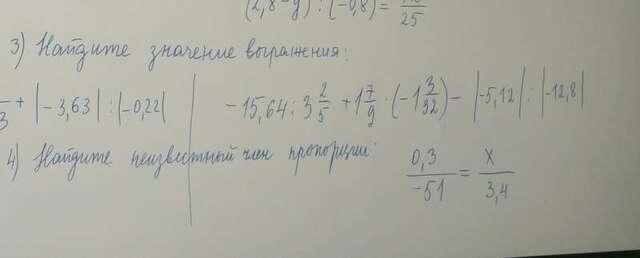 (2,8-y) : (-0,8) = /25
3) Найдите значение выражения:
/3 + |-3,63| : |-0,22|
-15,64 : 3 2/5 + 1 7/9 · (-1 3/32) - |-5,12| : |-12,8|
4) Найдите неизвестный член пропорции:
0,3/-51 = x/3,4